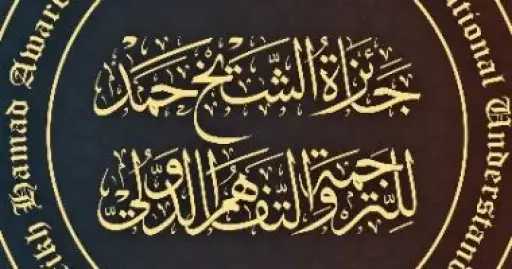 جَائزَةُ الشَّيْخ حَمَد
للتَّرجَمة والتَّفَاهُم الدَّوليّ
eikh Hamad Awar
ational Understand